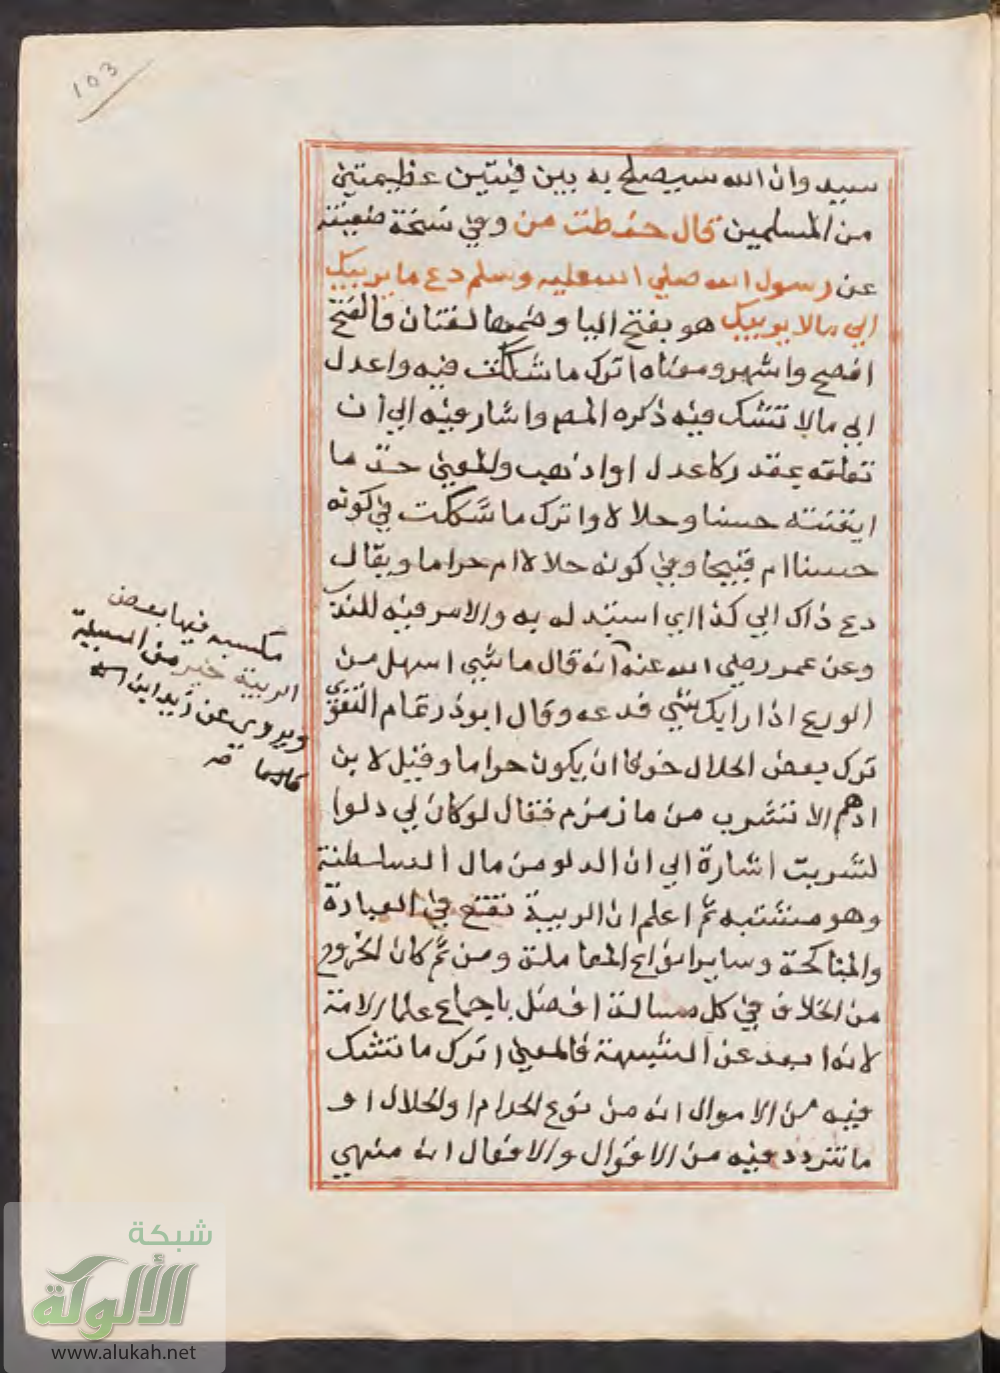 103
سيد وان الله سيصلح به بين فئتين عظيمتين
من المسلمين قال حفظت من وفي نسخة ضعيفة
عن رسول الله صلي الله عليه وسلم دع ما يريبك
الي مالا يريبك هو بفتح اليا وضمها لغتان فالفتح
افصح واشهر ومعناه اترك ما شككت فيه واعدل
الي مالا تشك فيه ذكره المصر واشار فيه الي ان
تعلقه بمقدر كاعدل او اذهب والمعني خذ ما
ايقنته حسنا وحلالا واترك ما شككت في كونه
حسنا ام قبيحا وفي كونه حلالا ام حراما ويقال
دع ذاك الي كذا اي استبدله به والامر فيه للندب
وعن عمر رضي الله عنه انه قال ما شي اسهل من
الورع اذا رابك شي فدعه وقال ابوذر تمام التقوي
ترك بعض الحلال خوفا ان يكون حراما وقيل لابن
ادهم الا تشرب من ما زمزم فقال لو كان لي دلوا
لشربت اشارة الي ان الدلو من مال السلطنة
وهو مشتبه ثم اعلم ان الريبة تقع في العبادة
والمناكحة وساير انواع المعاملة ومن ثم كان الخروج
من الخلاف في كل مسالة افضل باجماع علما الامة
لانه ابعد عن الشبهة فالمعني اترك ما تشك
فيه من الاموال انه من نوع الحرام او الحلال او
ما تتردد فيه من الاقوال والافعال انه منهي
مكسبه فيها بعض
الريبة خير من المسيلة
ويروي عن زيد ابن
شبكة
الألوكة
www.alukah.net